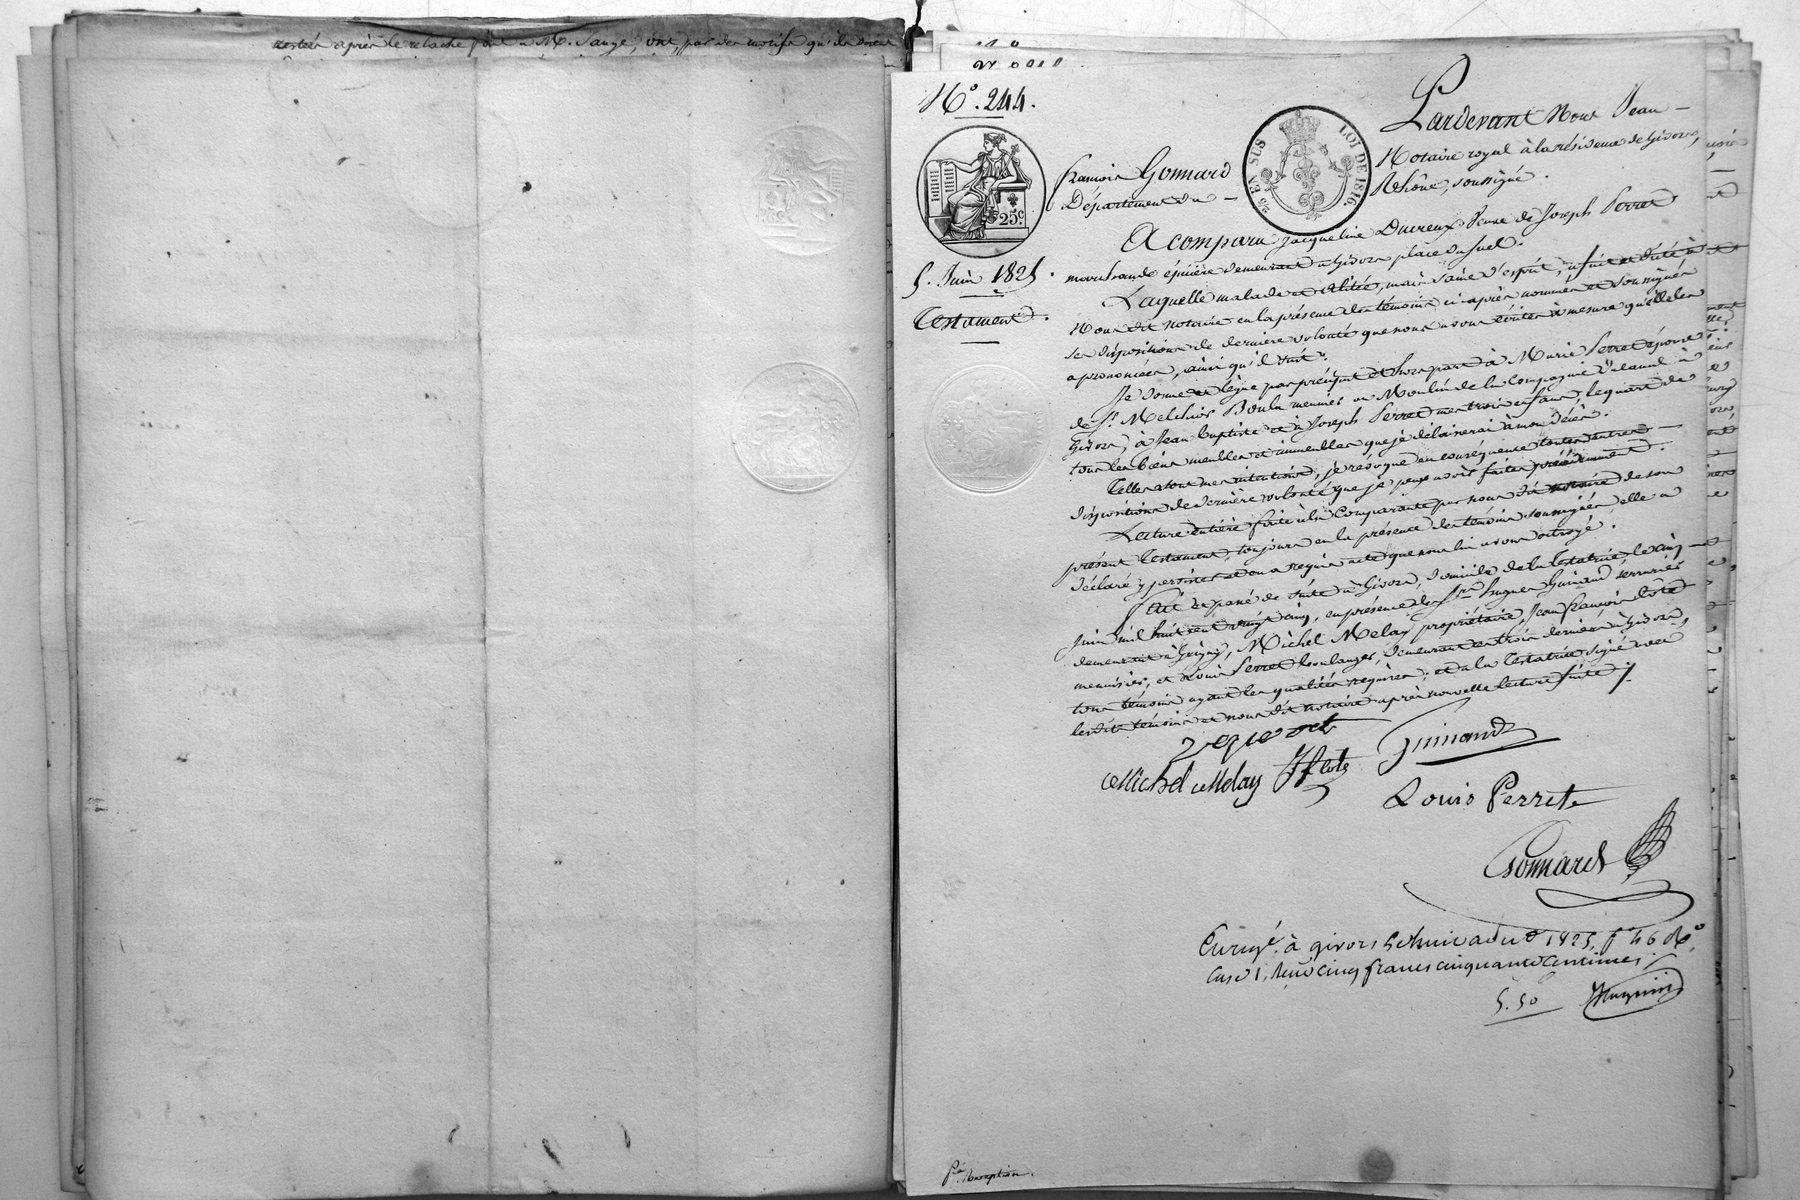 restée après le relache fait à M. Sauge, ont, par des motifs qu'ils disent
N.° 244.
25c.
25 EN SUS
LOI DE 1816.
5. Juin 1825.
Testament.
Pardevant Nous Jean-
françois Gonnard Notaire royal à la résidence de Givors,
Département du - Rhône, soussigné.
A comparu Jacqueline Ducreux veuve de Joseph Perret
marchande épicière demeurant à Givors place du Suel.
Laquelle malade et alitée, mais saine d'esprit, a fait et dicté à
Nous dit notaire en la présence des témoins ci-après nommés et soussignés
ses dispositions de dernière volonté que nous avons écrites à mesure qu'elle les
a prononcées, ainsi qu'il suit.
Je donne et lègue par préciput et hors part à Marie Perret épouse
de Sr. Melchior Boulu meunier au Moulin de la Compagnie du canal à
Givors, à Jean baptiste et à Joseph Perret mes trois enfans, le quart de
tous les biens meubles et immeubles que je délaisserai à mon décès.
Telles sont mes intentions, je révoque en conséquence toutes autres
dispositions de dernière volonté que je peux avoir faites précédemment.
Lecture entière faite à la Comparante par nous dit notaire de son
présent Testament, toujours en la présence des témoins soussignés, elle a
déclaré y persister et en a requis acte que nous lui avons octroyé.
Fait et passé de suite à Givors, domicile de la Testatrice, le cinq
Juin mil huit cent vingt cinq, en présence des Srs. Hugues Guinand serrurier
demeurant à Grigny, Michel Melay propriétaire, Jean françois flote
menuisier, et Louis Perret boulanger, demeurant les trois derniers à Givors,
tous témoins ayant les qualités requises, et a la Testatrice signé avec
lesdits témoins et nous dit notaire après nouvelle lecture faite./.
Michel Melay Jf flote Guinand
Louis Perret
Gonnard
Enregé. à givors le huit 1825, f° 46 R°,
case 1, Reçu cinq francs cinquante centimes.
5.50